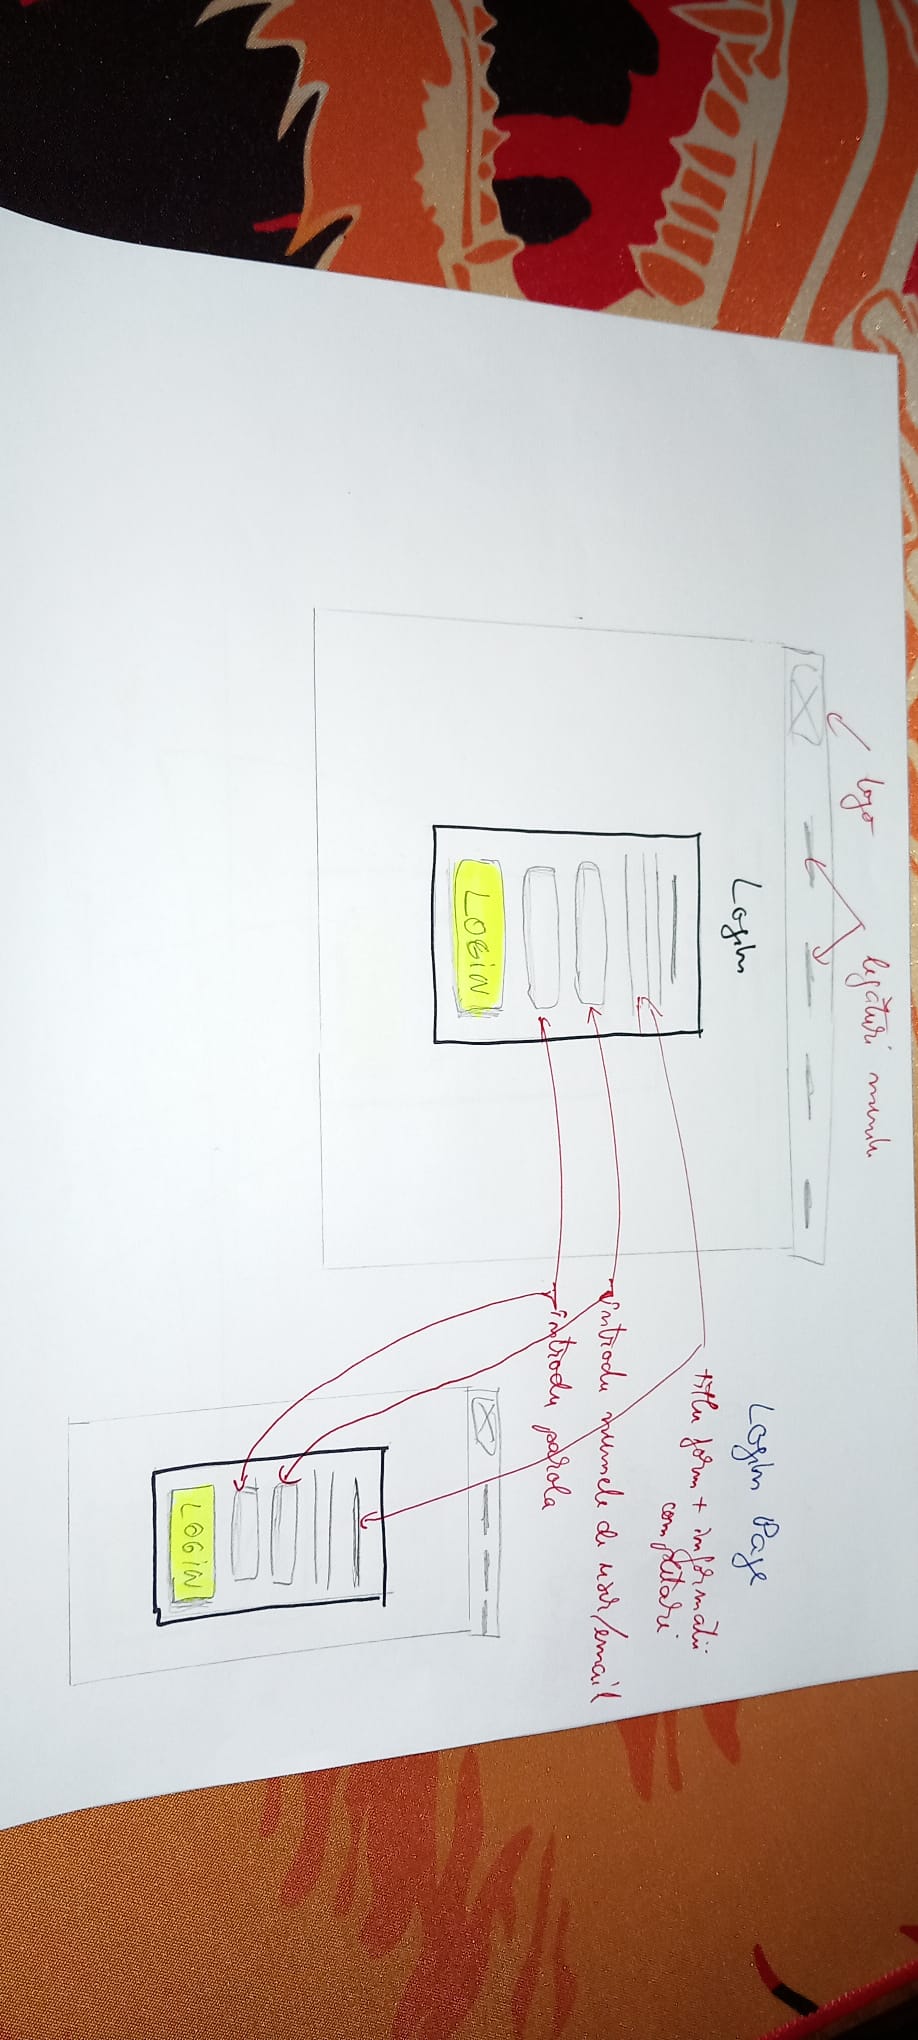 logo
legături meniu
Login
LOGIN
Login Page
titlu form + informații
completări
introdu numele de user/email
introdu parola
LOGIN